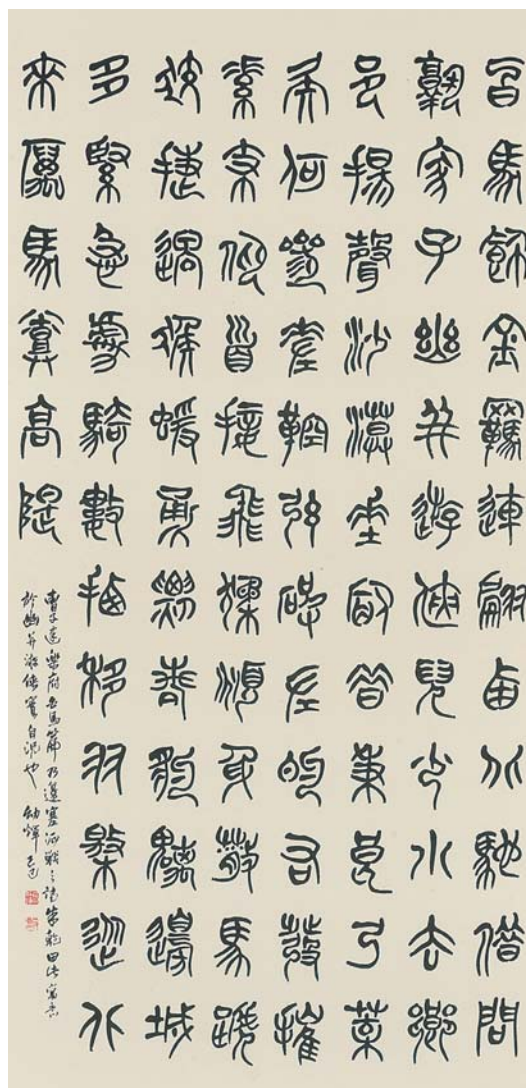 白馬飾金羈連翩西北馳借問
誰家子幽并遊俠兒少小去鄉
邑揚聲沙漠垂宿昔秉良弓楛
矢何參差控弦破左的右發摧
素支仰首接飛猱俯身散馬蹄
狡捷過猴猿勇剽若豹螭邊城
多緊急虜騎數遷移羽檄從北
來厲馬登高隄
曹子建樂府白馬篇乃邊塞征戰之詩朱乾曰此寓意
於幽并游俠實自況也 己巳